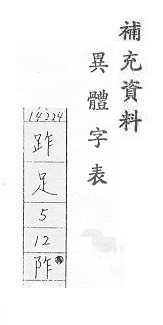 補充資料
異體字表
14224
䟭
足
5
12
阼